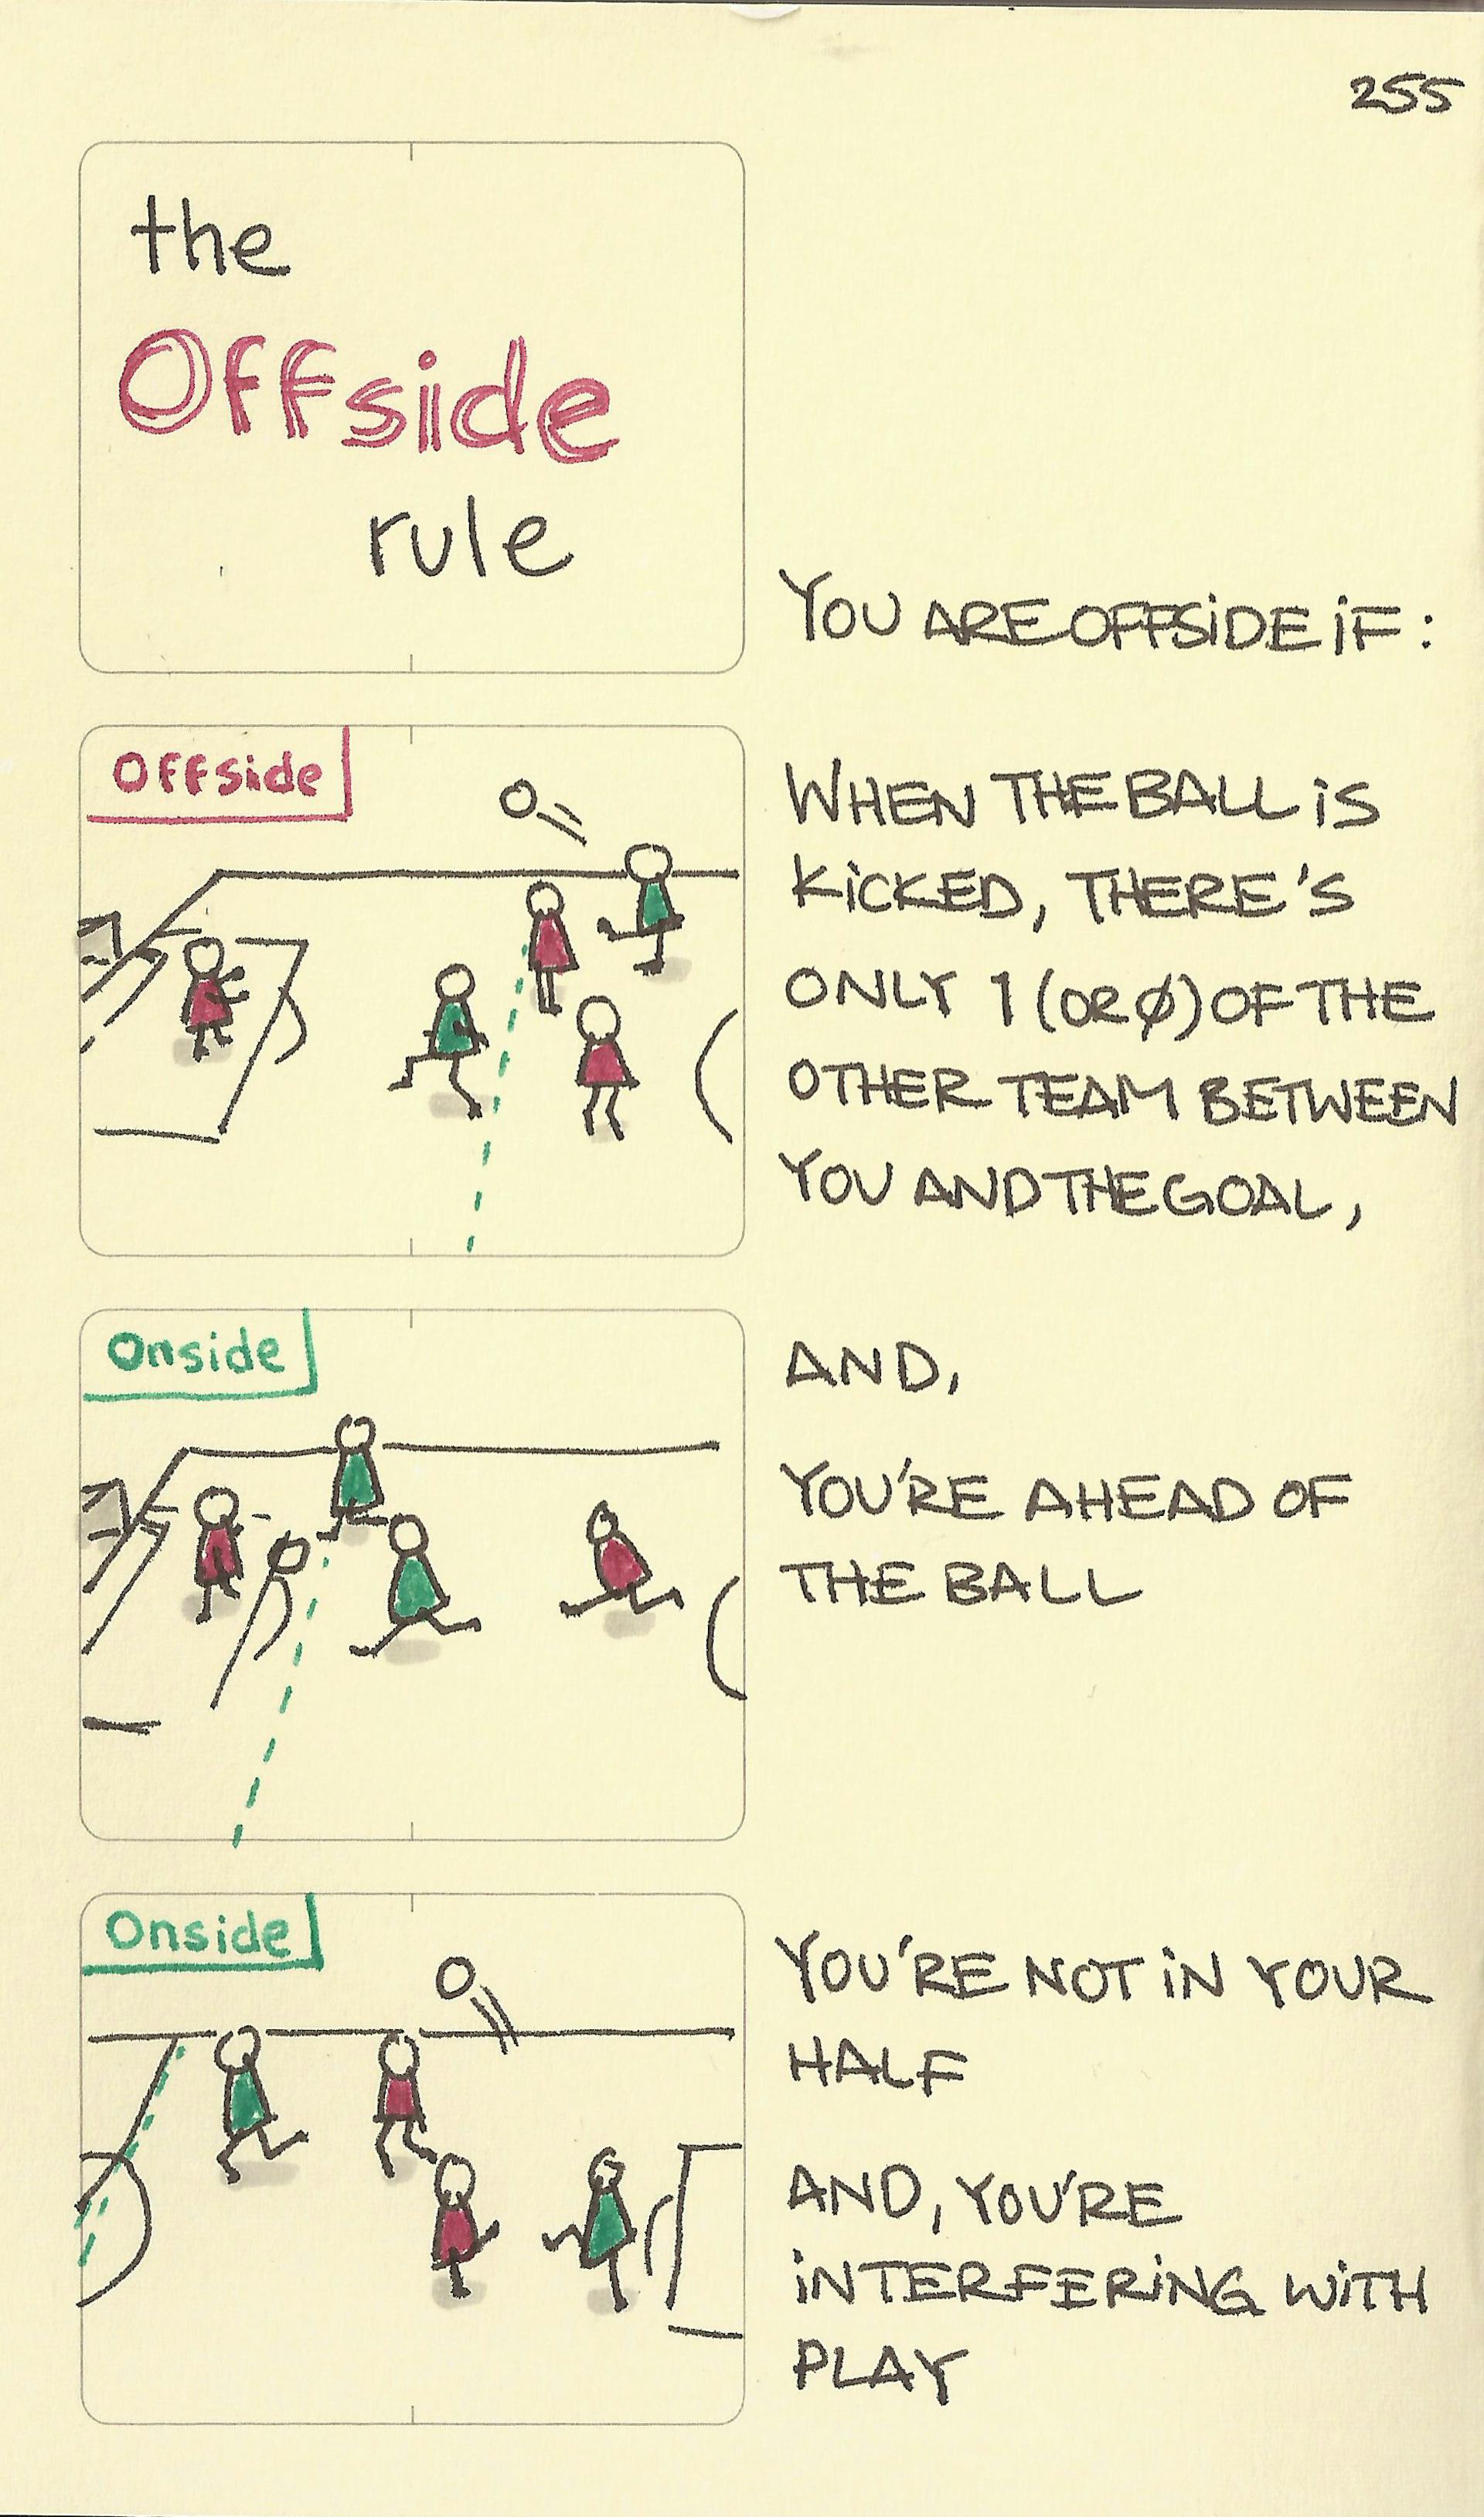 255
the
Offside
rule
YOU ARE OFFSIDE IF:
Offside
WHEN THE BALL IS
KICKED, THERE'S
ONLY 1 (OR Ø) OF THE
OTHER TEAM BETWEEN
YOU AND THE GOAL,
Onside
AND,
YOU'RE AHEAD OF
THE BALL
Onside
YOU'RE NOT IN YOUR
HALF
AND, YOU'RE
INTERFERING WITH
PLAY